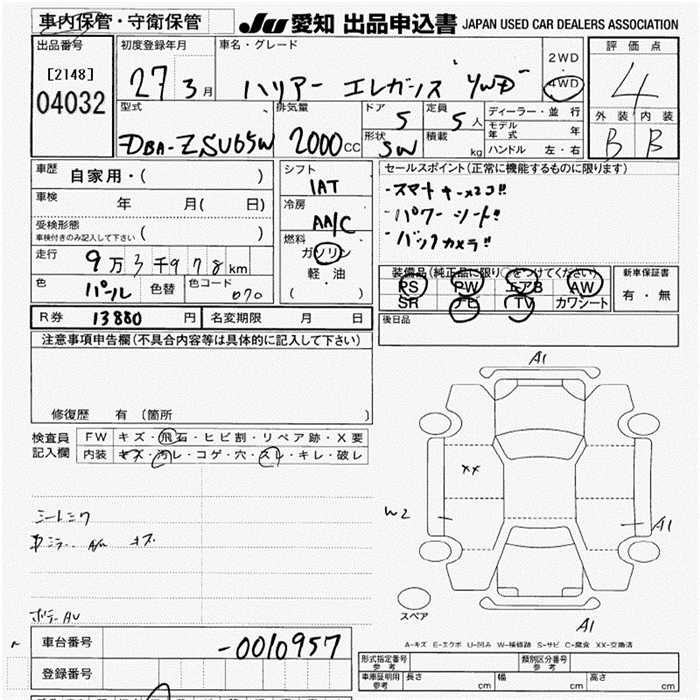 車内保管・守衛保管
JU 愛知 出品申込書 JAPAN USED CAR DEALERS ASSOCIATION
出品番号
[2148]
04032
初度登録年月
27 3月
車名・グレード
ハリアー エレガンス "4WD"
2WD
4WD
評価点
4
外装 内装
B B
型式
DBA-ZSU65W
排気量
2000CC
ドア
5
定員
5人
形状
SW
積載
kg
ディーラー・並行
モデル年式 年
ハンドル 左・右
車歴 自家用・( )
車検 年 月( 日)
受検形態
車検付きのみ記入して下さい ( )
走行 9万3千978km
色 パール 色替 色コード 070
シフト
IAT
冷房
AA/C
燃料
ガソリン
軽・油
( )
セールスポイント(正常に機能するものに限ります)
・スマートキー×2コ!!
・パワーシート!!
・バックカメラ!!
装備品(純正品に限り○をつけてください)
PS PW エアB AW
SR ナビ TV カワシート
新車保証書
有・無
後日品
R券 13880円 名変期限 月 日
注意事項申告欄(不具合内容等は具体的に記入して下さい)
修復歴 有 〔箇所 〕
検査員記入欄
FW キズ・飛石・ヒビ割・リペア跡・X要
内装 キズ・汚レ・コゲ・穴・スレ・キレ・破レ
A1
XX
W2
A1
A1
スペア
A-キズ E-エクボ U-凹み W-補修跡 S-サビ C-腐食 XX-交換済
車台番号 -0010957
登録番号
型式指定番号 参考
類別区分番号 参考
車庫証明用 参考 長さ cm 幅 cm 高さ cm